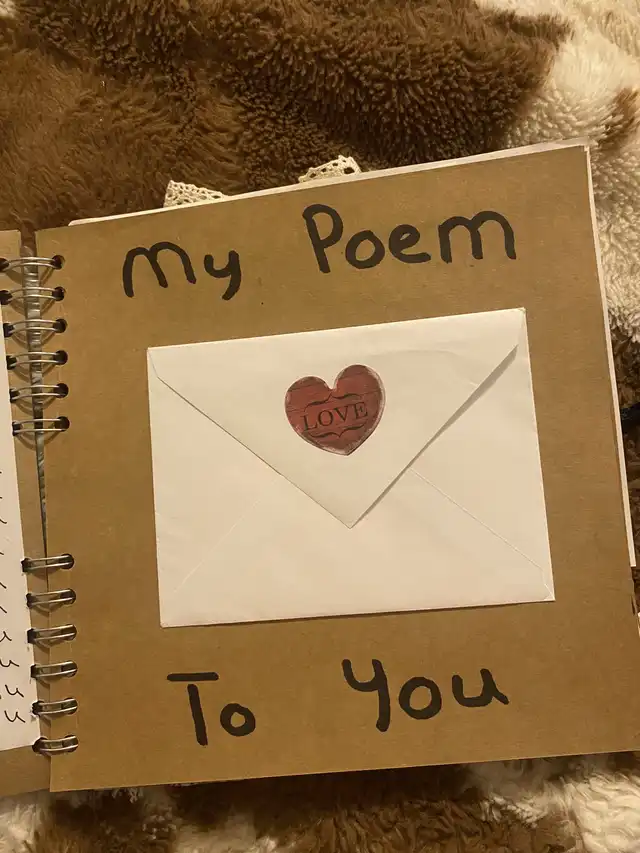 My Poem
LOVE
To You